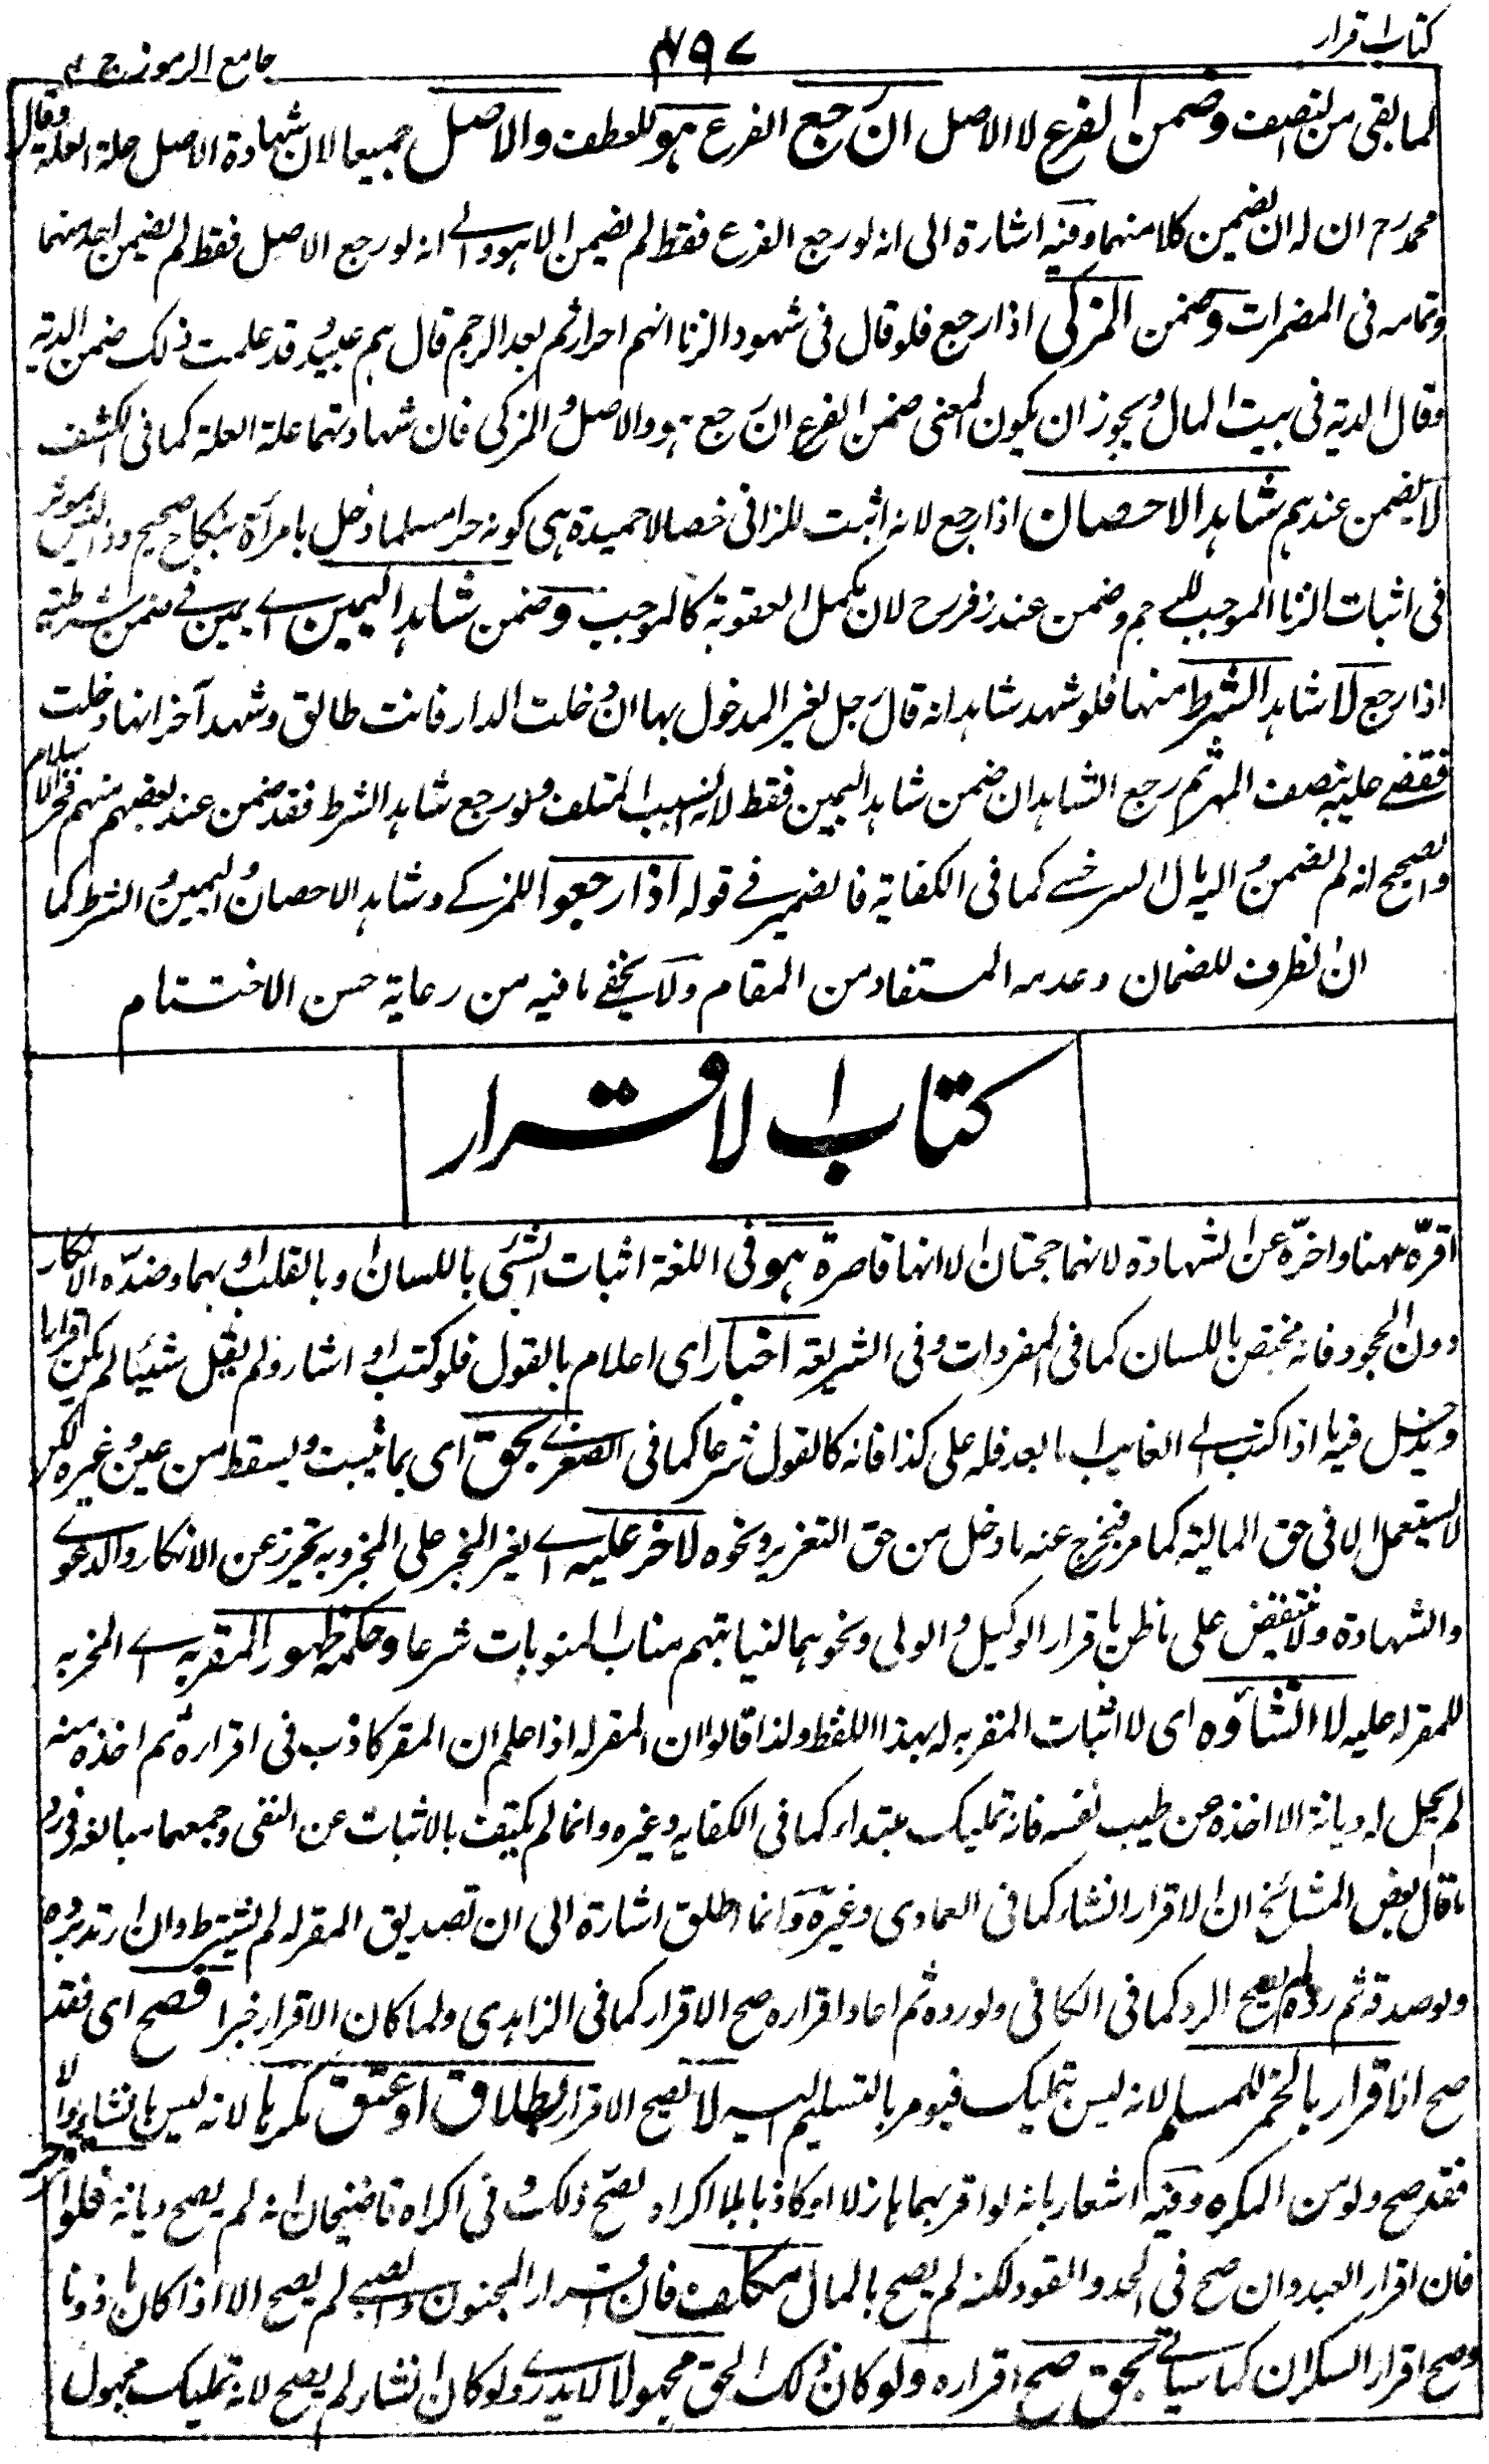 كتاب اقرار
٤٩٧
جامع الرموز ج ٢
لما بقى من النصف وضمن الفرع لا الاصل ان رجع الفرع هو للعطف والاصل جميعا لان شهادة الاصل علة العلة وقال
محمد رح ان له ان يضمن كلا منهما وفيه اشارة الى انه لو رجع الفرع فقط لم يضمن الا هو والى انه لو رجع الاصل فقط لم يضمن احد منهما
وتمامه فى المضمرات وضمن المزكى اذا رجع فلو قال فى شهود الزنا انهم احرار ثم بعد الرجم قال هم عبيد وقد علمت ذلك ضمن الدية
وقالا الدية فى بيت المال ويجوز ان يكون المعنى ضمن الفرع ان رجع هو والاصل والمزكى فان شهادتهما علة العلة كما فى الكشف
لا يضمن عندهم شاهد الاحصان اذا رجع لانه اثبت للزانى خصالا حميدة هى كونه حرا مسلما دخل بامرأة بنكاح صحيح وذا ليس بموثر
فى اثبات الزنا الموجب للرجم وضمن عند زفر رح لان مكمل العقوبة كالموجب وضمن شاهد اليمين اى يمين فى ضمن شرطية
اذا رجع لا شاهد الشرط منها فلو شهد شاهد انه قال رجل لغير المدخول بها ان دخلت الدار فانت طالق وشهد آخر انها دخلت
فقضى عليه بنصف المهر ثم رجع الشاهدان ضمن شاهد اليمين فقط لانه السبب المتلف ولو رجع شاهد الشرط فقد ضمن عند بعضهم منهم فخر الاسلام
والصحيح انه لم يضمن واليه مال السرخسى كما فى الكفاية فالضمير فى قوله اذا رجعوا للمزكى وشاهد الاحصان واليمين والشرط كما
ان الظرف للضمان وعدمه المستفاد من المقام ولا يخفى ما فيه من رعاية حسن الاختتام
كتاب الاقرار
اقره ههنا واخره عن الشهادة لانهما حجتان الا انها قاصرة هو فى اللغة اثبات الشئ باللسان او بالقلب او بهما وضده الانكار
دون الجحود فانه مختص باللسان كما فى المفردات وفى الشريعة اخبار اى اعلام بالقول فلو كتب او اشار ولم يقل شيئا لم يكن اقرارا
ويدخل فيه ما اذا كتب الى الغايب اما بعد فله على كذا فانه كالقول شرعا كما فى الصغرى بحق اى بما يثبت ويسقط من عين وغيره لكن
لا يستعمل الا فى حق المالية كما مر فيخرج عنه ما دخل من حق التعزير ونحوه لآخر عليه اى لغير المخبر على المخبر وبه تحرز عن الانكار والدعوى
والشهادة ولا ينتقض على ما ظن باقرار الوكيل والولى ونحوهما لنيابتهم مناب المنوبات شرعا وحكمه ظهور المقر به اى المخبر به
للمقر له عليه لا انشاؤه اى لا اثبات المقر به له بهذا اللفظ ولذا قالوا ان المقر له اذا علم ان المقر كاذب فى اقراره ثم اخذه منه
لم يحل له ديانة الا اخذه عن طيب نفسه فانه تمليك مبتداء كما فى الكفايه وغيره وانما لم يكتف بالاثبات عن النفى وجمعهما مبالغة فى رد
ما قال بعض المشائخ ان الاقرار انشاء كما فى العمادى وغيره وانما اطلق اشارة الى ان تصديق المقر له لم يشترط وان ارتد برده
ولو صدقه ثم رده لم يصح الرد كما فى الكافى ولو رده ثم اعاد اقراره صح الاقرار كما فى الزاهدى ولما كان الاقرار خبرا فصح اى فقد
صح الاقرار بالخمر للمسلم لانه ليس بتمليك فيومر بالتسليم اليه لا يصح الاقرار بطلاق او عتق مكرها لانه ليس بانشاء والا
فقد صح ولو من المكره وفيه اشعار بانه لو اقر بهما هازلا او كاذبا بلا اكراه يصح ذلك وفى اكراه قاضيخان انه لم يصح ديانة فلو اقر حر
فان اقرار العبد وان صح فى الحد والقود لكنه لم يصح بالمال مكلف فان اقرار المجنون والصبى لم يصح الا اذا كان ماذونا
وصح اقرار السكران كما سياتى بحق صح اقراره ولو كان ذلك الحق مجهولا لا يدرى ولو كان انشاء لم يصح لانه تمليك مجهول